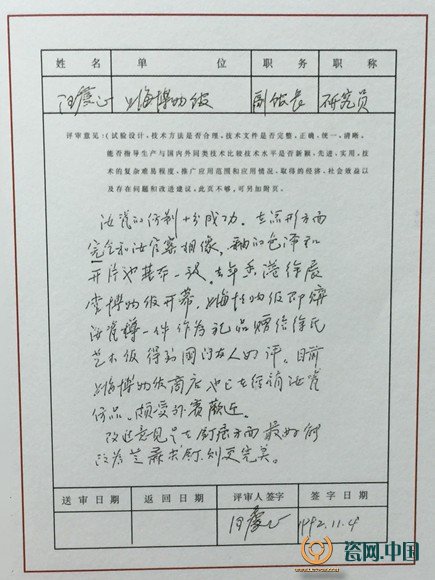 姓名 单位 职务 职称
汪庆正 上海博物馆 副馆长 研究员
评审意见:(试验设计、技术方法是否合理、技术文件是否完整、正确、统一、清晰、
能否指导生产与国内外同类技术比较技术水平是否新颖、先进、实用、技
术的复杂难易程度、推广应用范围和应用情况、取得的经济、社会效益以
及存在问题和改进建议。此页不够,可另加附页。
汝瓷的仿制十分成功。在器形方面
完全和汝官窑相像,釉的色泽和
开片也基本一致。去年香港徐展
堂博物馆开幕,上海博物馆即携
汝瓷樽一件作为礼品赠给徐氏
艺术馆得到国内外友人的好评。目前
上海博物馆商店也已在经销汝瓷
仿品,颇受外宾欢迎。
改进意见是在钉痕方面最好能
改为芝麻支钉,则更完美。
送审日期 返回日期 评审人签字 签字日期
汪庆正 1992.11.4
瓷网.中国